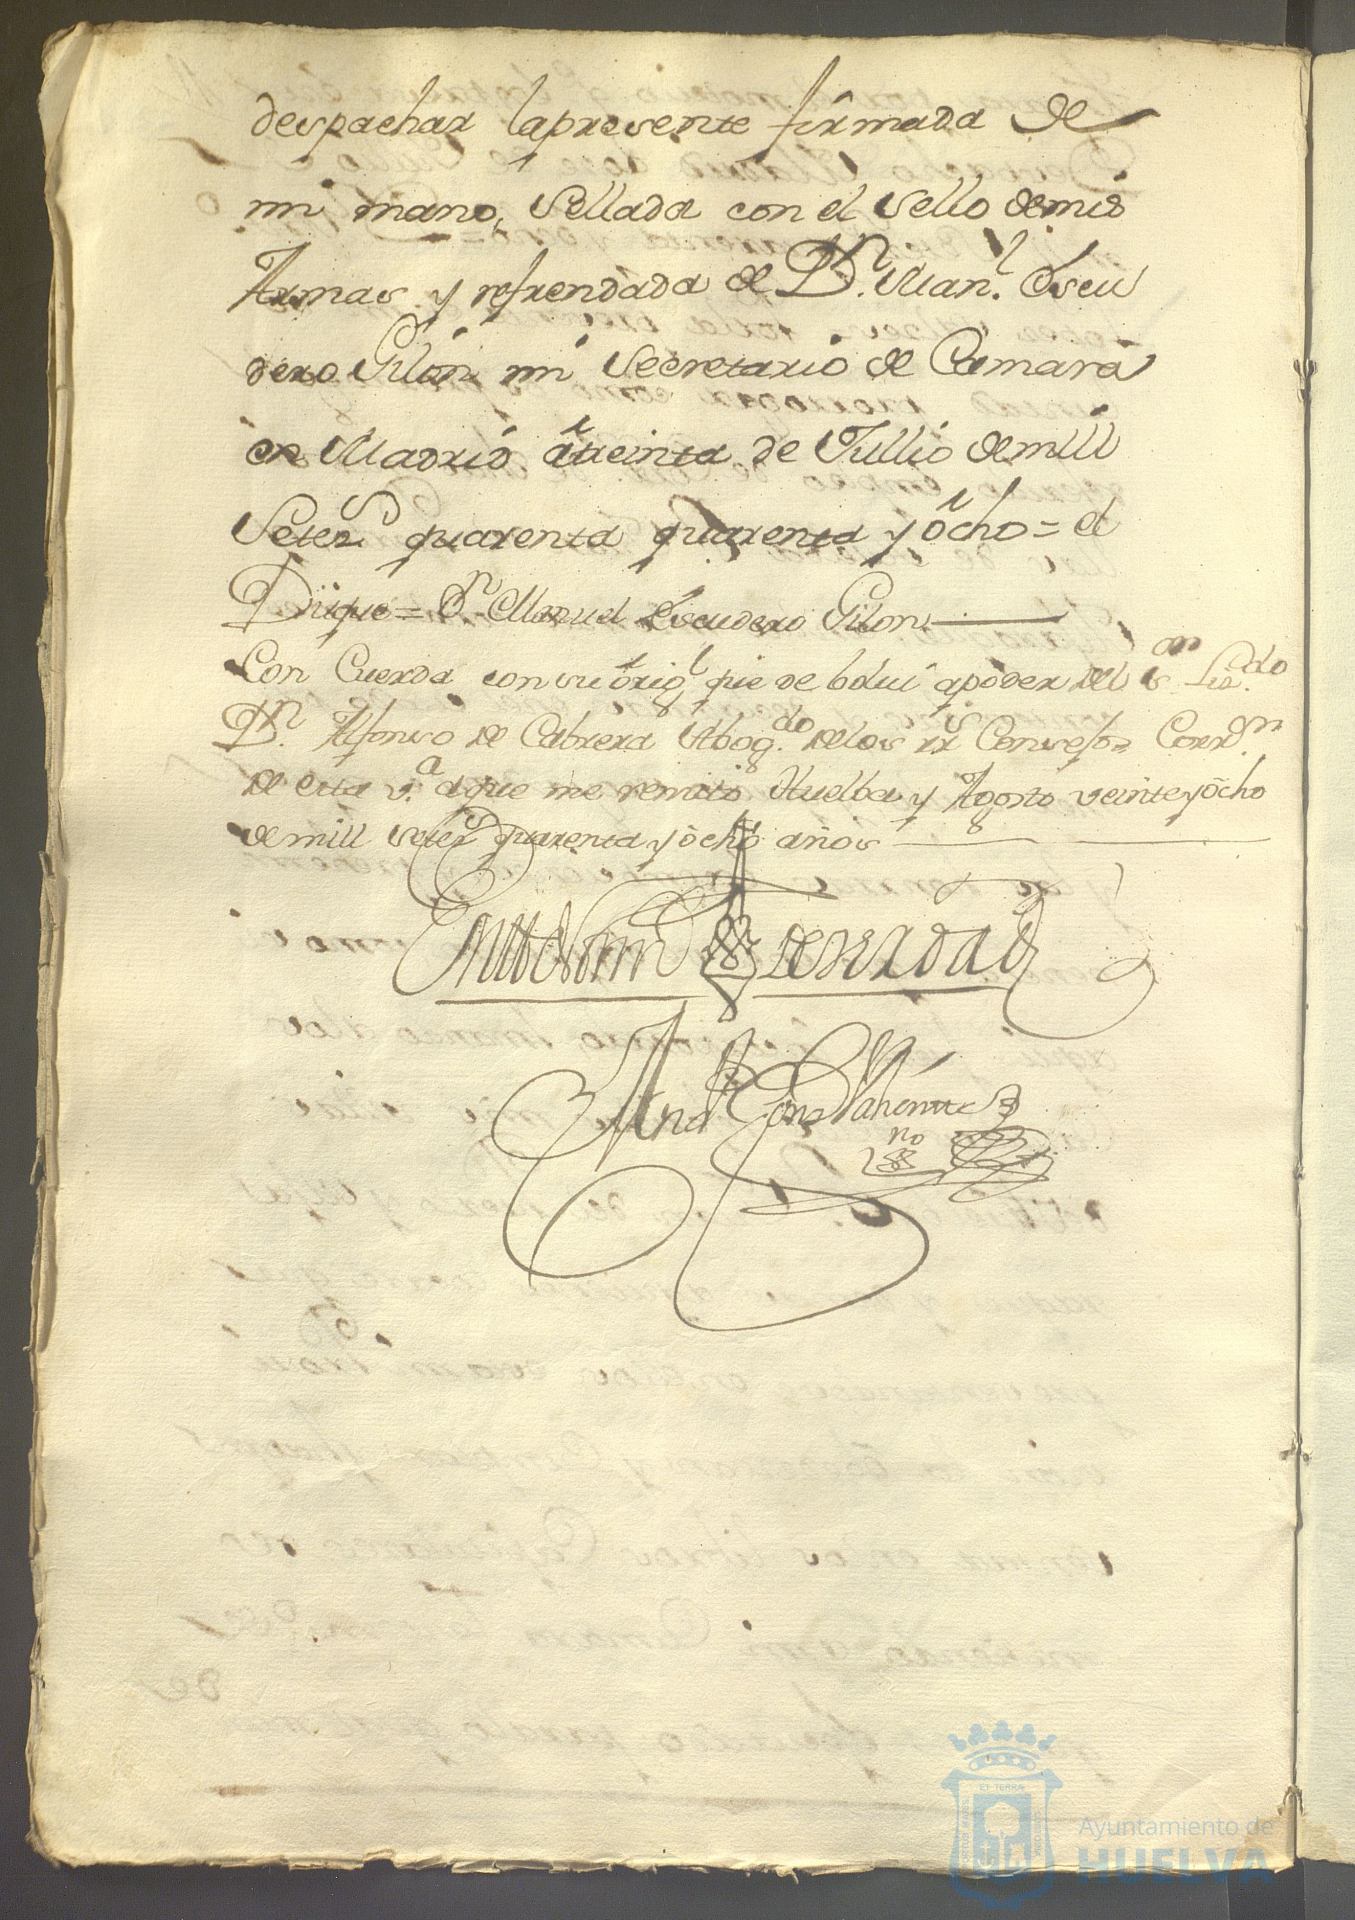 despachar lapresente firmada de
mi mano, Sellada con el Sello demis
Armas y refrendada de Dn. Manl. Escu
dero Gilon mi Secretario de Camara
en Madrid â treinta de Jullio demill
Setezs quarenta quarenta y ôcho = el
Duque = Dn Manuel Escudero Gilon
Con Cuerda con su ôrigl que de bolui apoder del sor Lizdo
Dn. Alfonso de Cabrera Abogdo. delos rs Consejos Corrgor
de esta va. aque me remito Huelba y Agosto veinte y ôcho
demill setezs quarenta y ôcho años
En testim de verdad
no
Ayuntamiento de
HUELVA